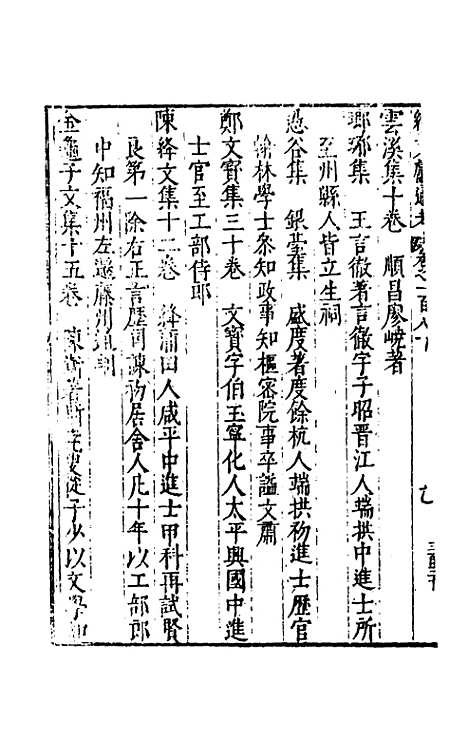 續文獻通考 卷之一百八十
雲溪集十卷 順昌廖峣著
瑯琊集 王言徹著言徹字子昭晋江人端拱中進士所
至州縣人皆立生祠
愚谷集 銀臺集 盛度著度餘杭人端拱初進士歷官
翰林學士叅知政事知樞密院事卒謚文肅
鄭文寶集三十卷 文寶字伯玉寧化人太平興國中進
士官至工部侍郎
陳絳文集十二卷 絳莆田人咸平中進士甲科再試賢
良第一除右正言歷同諫初居舍人凡十年以工部郎
中知福州左遷藤州通判
金龜子文集十五卷 從子少以文學